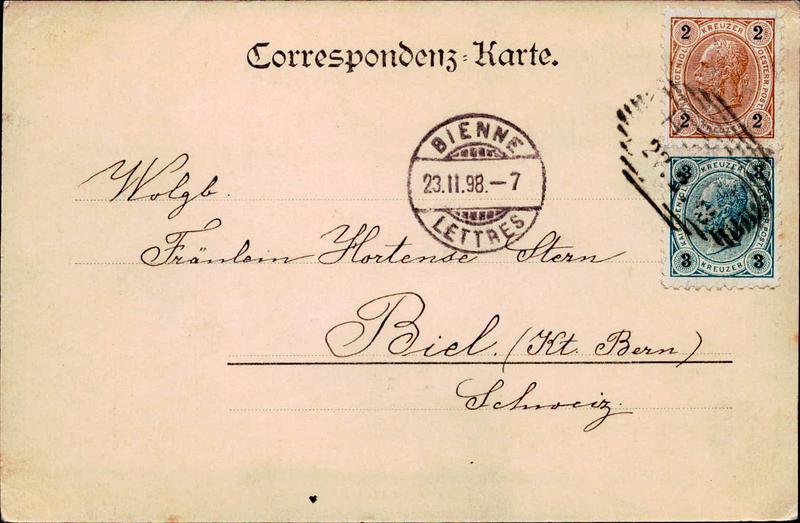 Correspondenz-Karte.
2 KREUZER 2
OESTERR. POST.
2 KREUZER 2
3 KREUZER 3
OESTERR. POST.
3 KREUZER 3
BIENNE
23.II.98.–7
LETTRES
Wolgb.
Fräulein Hortense Stern
Biel. (Kt. Bern)
Schweiz.